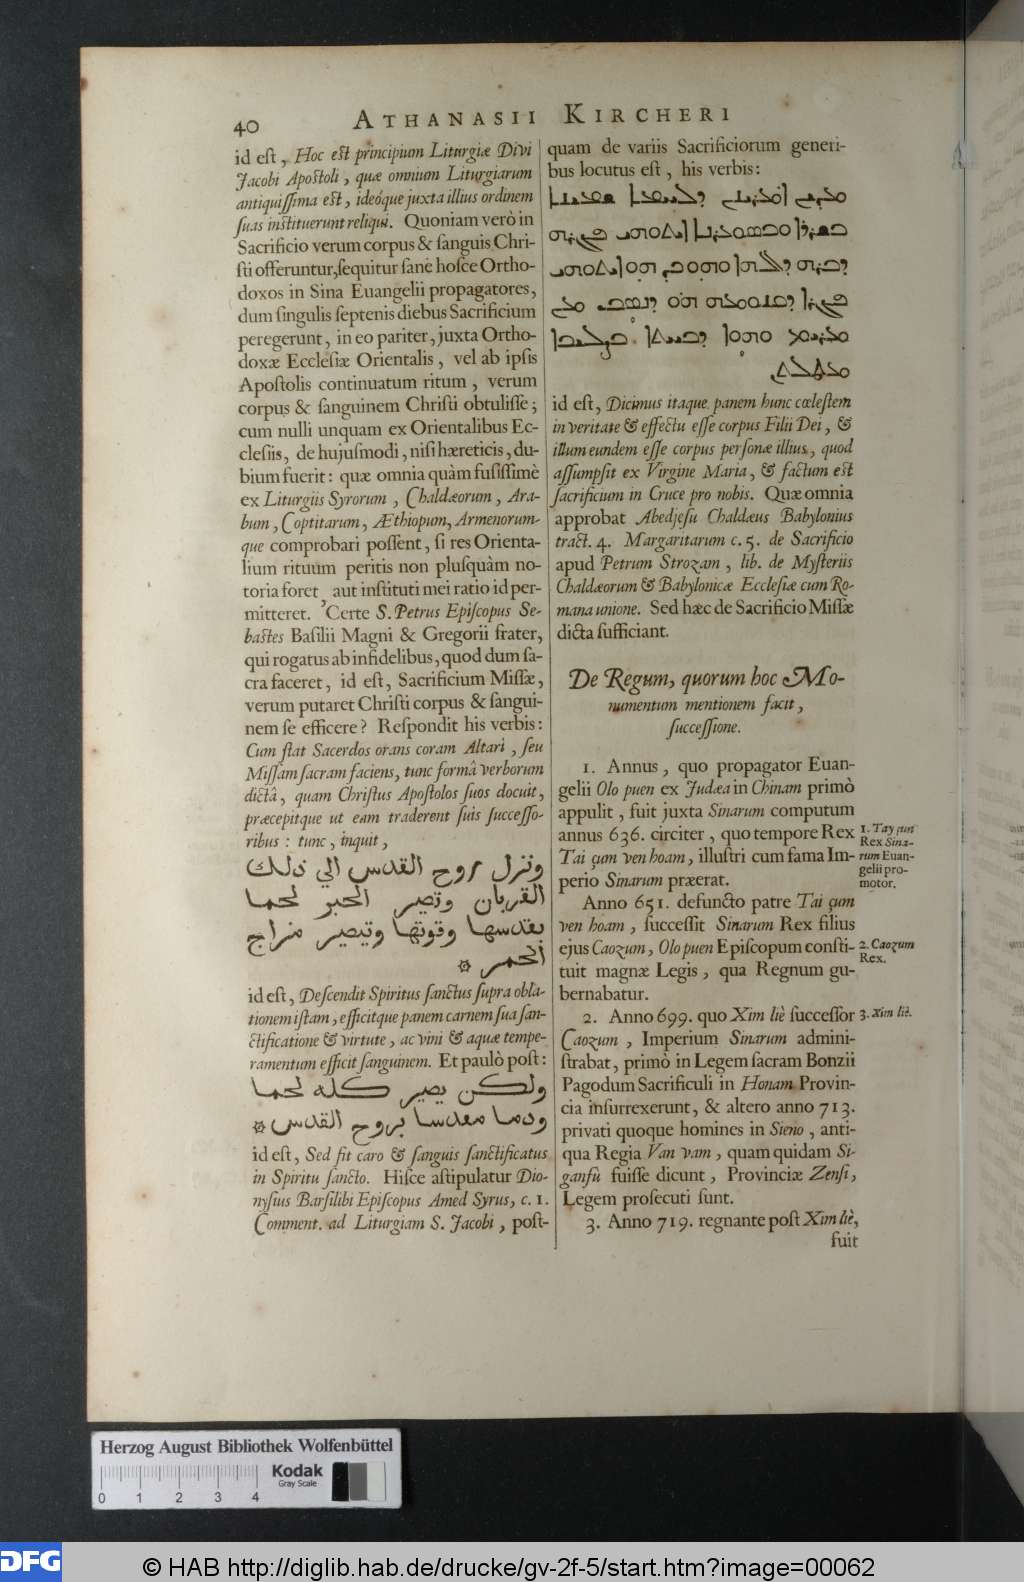 40
ATHANASII KIRCHERI
id eſt, Hoc eſt principium Liturgiæ Divi
Jacobi Apoſtoli, quæ omnium Liturgiarum
antiquiſſima eſt, ideóque juxta illius ordinem
ſuas inſtituerunt reliqui. Quoniam verò in
Sacrificio verum corpus & ſanguis Chri-
ſti offeruntur, ſequitur ſanè hoſce Ortho-
doxos in Sina Euangelii propagatores,
dum ſingulis ſeptenis diebus Sacrificium
peregerunt, in eo pariter, juxta Ortho-
doxæ Eccleſiæ Orientalis, vel ab ipſis
Apoſtolis continuatum ritum, verum
corpus & ſanguinem Chriſti obtuliſſe;
cum nulli unquam ex Orientalibus Ec-
cleſiis, de hujuſmodi, niſi hæreticis, du-
bium fuerit: quæ omnia quàm fuſiſſimè
ex Liturgiis Syrorum, Chaldæorum, Ara-
bum, Coptitarum, Æthiopum, Armenorum-
que comprobari poſſent, ſi res Orienta-
lium rituum peritis non pluſquàm no-
toria foret, aut inſtituti mei ratio id per-
mitteret. Certe S. Petrus Epiſcopus Se-
baſtes Baſilii Magni & Gregorii frater,
qui rogatus ab infidelibus, quod dum ſa-
cra faceret, id eſt, Sacrificium Miſſæ,
verum putaret Chriſti corpus & ſangui-
nem ſe efficere? Reſpondit his verbis:
Cum ſtat Sacerdos orans coram Altari, ſeu
Miſſam ſacram faciens, tunc formâ verborum
dictâ, quam Chriſtus Apoſtolos ſuos docuit,
præcepitque ut eam traderent ſuis ſucceſſo-
ribus: tunc, inquit,
وتنزل روح القدس الي ذلك
القربان وتصير الخبز لحما
بقدسها وقوتها وتيصير مزاج
الخمر ۞
id eſt, Deſcendit Spiritus ſanctus ſupra obla-
tionem iſtam, efficitque panem carnem ſua ſan-
ctificatione & virtute, ac vini & aquæ tempe-
ramentum efficit ſanguinem. Et paulò poſt:
ولكن يصير كله لحما
ودما مقدسا بروح القدس ۞
id eſt, Sed fit caro & ſanguis ſanctificatus
in Spiritu ſancto. Hiſce aſtipulatur Dio-
nyſius Barſilibi Epiſcopus Amed Syrus, c. 1.
Comment. ad Liturgiam S. Jacobi, poſt-
quam de variis Sacrificiorum generi-
bus locutus eſt, his verbis:
id eſt, Dicimus itaque panem hunc cœleſtem
in veritate & effectu eſſe corpus Filii Dei, &
illum eundem eſſe corpus perſonæ illius, quod
aſſumpſit ex Virgine Maria, & factum eſt
ſacrificium in Cruce pro nobis. Quæ omnia
approbat Abedjeſu Chaldæus Babylonius
tract. 4. Margaritarum c. 5. de Sacrificio
apud Petrum Strozam, lib. de Myſteriis
Chaldæorum & Babylonicæ Eccleſiæ cum Ro-
mana unione. Sed hæc de Sacrificio Miſſæ
dicta ſufficiant.
De Regum, quorum hoc Mo-
numentum mentionem facit,
ſucceſſione.
1. Annus, quo propagator Euan-
gelii Olo puen ex Judæa in Chinam primò
appulit, fuit juxta Sinarum computum
annus 636. circiter, quo tempore Rex
Tai çum ven hoam, illuſtri cum fama Im-
perio Sinarum præerat.
1. Tay çun
Rex Sina-
rum Euan-
gelii pro-
motor.
Anno 651. defuncto patre Tai çum
ven hoam, ſucceſſit Sinarum Rex filius
ejus Caozum, Olo puen Epiſcopum conſti-
tuit magnæ Legis, qua Regnum gu-
bernabatur.
2. Caozum
Rex.
2. Anno 699. quo Xim liè ſucceſſor
Caozum, Imperium Sinarum admini-
ſtrabat, primò in Legem ſacram Bonzii
Pagodum Sacrificuli in Honam Provin-
cia inſurrexerunt, & altero anno 713.
privati quoque homines in Sieno, anti-
qua Regia Van vam, quam quidam Si-
ganfù fuiſſe dicunt, Provinciæ Zenſi,
Legem proſecuti ſunt.
3. Xim liè.
3. Anno 719. regnante poſt Xim liè,
fuit
Herzog August Bibliothek Wolfenbüttel
Kodak
Gray Scale
0 1 2 3 4
DFG
© HAB http://diglib.hab.de/drucke/gv-2f-5/start.htm?image=00062